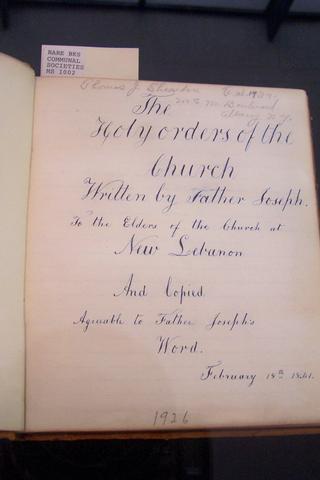 RARE BKS
COMMUNAL
SOCIETIES
MS 1002
Thomas J.
The
Holy orders of the
Church
Written by Father Joseph.
To the Elders of the Church at
New Lebanon
And Copied
Agreeable to Father Joseph's
Word.
February 18th 1841.
1926